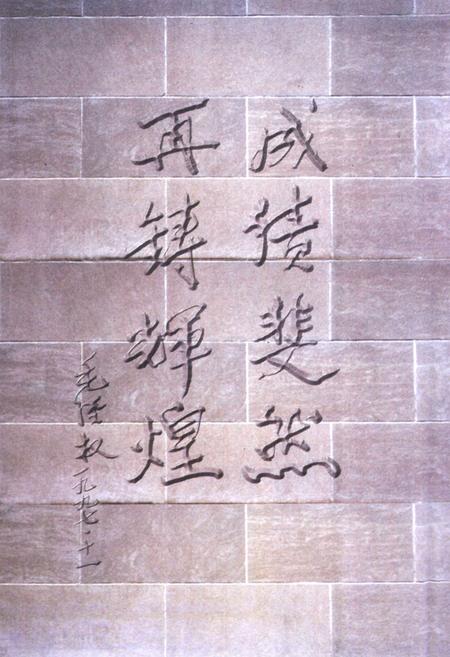 成績斐然
再铸輝煌
毛经权 一九九七·十一